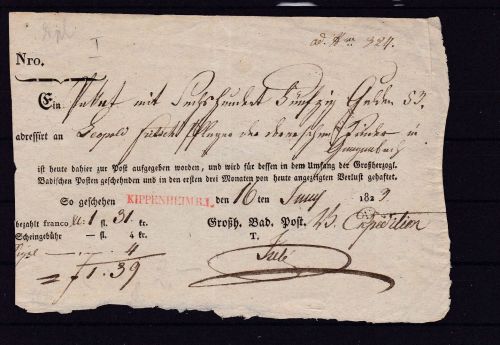 I
ad. Nro 324.
Nro.
Ein Paket mit Sechshundert Fünfzig Gulden 53.
adressirt an Leopold Pfleger der Kinder in
Gengenbach
ist heute dahier zur Post aufgegeben worden, und wird für dessen in dem Umfang der Großherzogl.
Badischen Posten geschehnden und in den ersten drei Monaten von heute angezeigten Verlust gehaftet.
So geschehen KIPPENHEIM R.1. den 16 ten Juny 1829.
bezahlt franco fl: 1 fl. 31. kr. Großh. Bad. Post. Expedition
Scheingebühr — fl. 4 kr. T.
4
= f 1.39